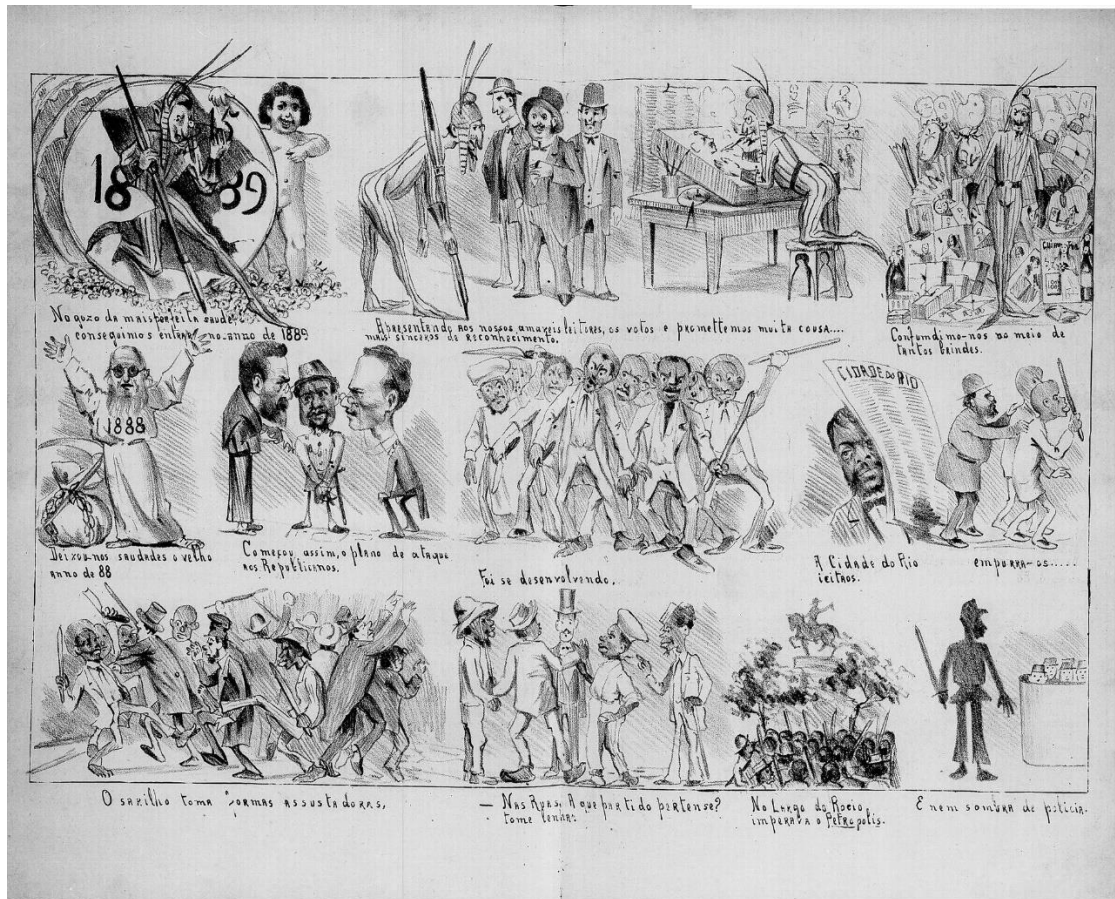 1889
No gozo da mais perfeita saude,
conseguimos entrar no anno de 1889
Apresentando aos nossos amaveis leitores, os votos e promettemos muita cousa....
mais sinceros de reconhecimento.
Confundimo-nos no meio de
tantos brindes.
1888
Deixou-nos saudades o velho
anno de 88
Começou assim, o plano de ataque
aos Republicanos.
Foi se desenvolvendo.
CIDADE DO RIO
A Cidade do Rio
empurra-os.....
O sarilho toma formas assustadoras,
— Nas Ruas, A que partido pertense?
tome lenha:
No Largo do Rocio,
imperava o Petropolis.
E nem sombra de policia.